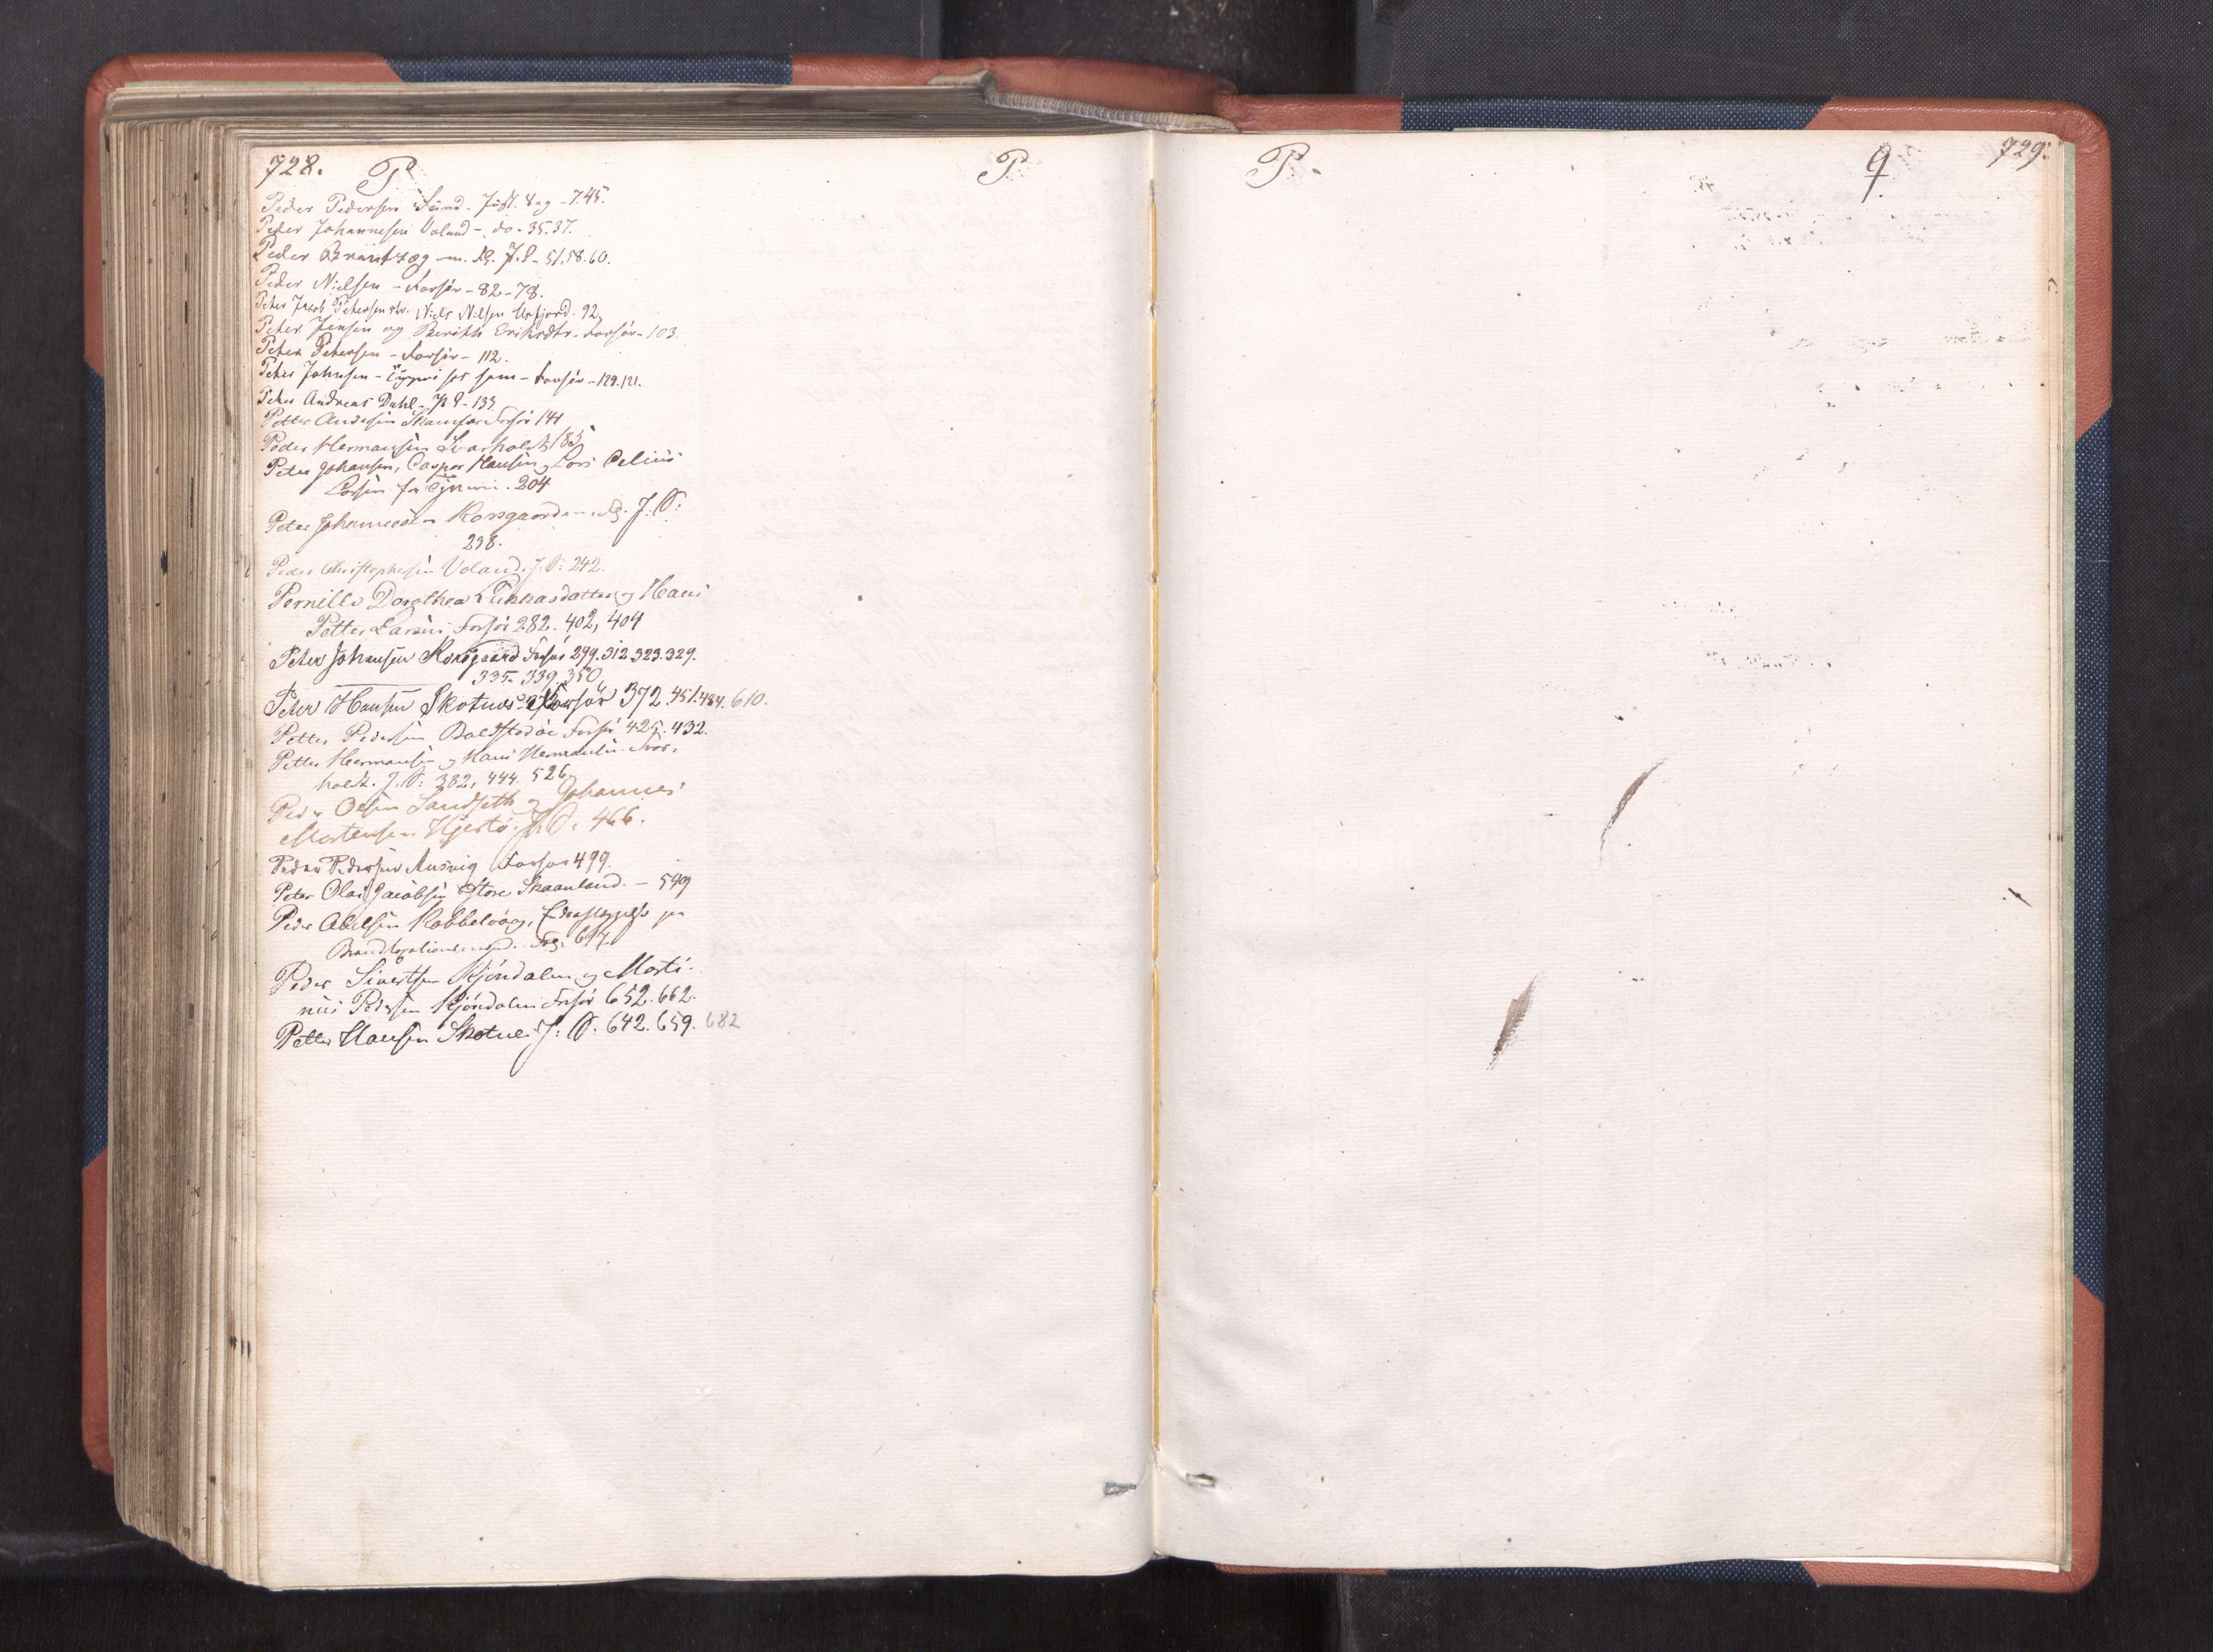 728. P. P.
Peder Pedersen Sund - Just. Sag - 7.45.
Peder Johannesen Voland - do - 35.37.
Peder m. fl. J. S - 51.58.60.
Peder Nielsen - Forhør - 82-78.
Peter Jacob Petersen Niels Nilsen 92.
Peter Jensen og Berith Eriksdtr. Forhør - 103.
Peter Petersen - Forhør - 112.
Peter Johnsen - Forhør - 129.121.
Peter Andreas Dahl - J. S - 133.
Petter Andersen Forhør 141
Peder Hermansen Svarholdt 185
Peter Johansen, Casper Hansen og Lars Pelius
Larsen fra 204
Peter Johannesen Korsgaard m. fl. J. S:
238.
Peder Christophersen Voland. J. S: 242.
Pernille Dorothea Lukkasdatter og Hans
Petter Larsen Forhør 282. 402, 404
Peter Johansen Korsgaard Forhør 299.312.323.329.
335. 339. 350.
Peter Hansen Skotnes Forhør 372.451.484.610.
Petter Pedersen Forhør 425. 432.
Petter Hermansen og Hans Hermansen Svar-
holdt. J. S: 382, 444. 526
Peder Olsen Sandseth og Johannes
Mortensen J. S. 466.
Peder Pedersen Forhør 499.
Peter Olai Jacobsen Store Skaanland. - 549
Peder Abelsen Kobbelvaag, på
Fog: 617
Peder Sivertsen Kjøndalen og Marti-
nus Pedersen Kjøndalen Forhør 652. 662.
Petter Hansen Skotnes J. S. 642. 659. 682
P. q 729.